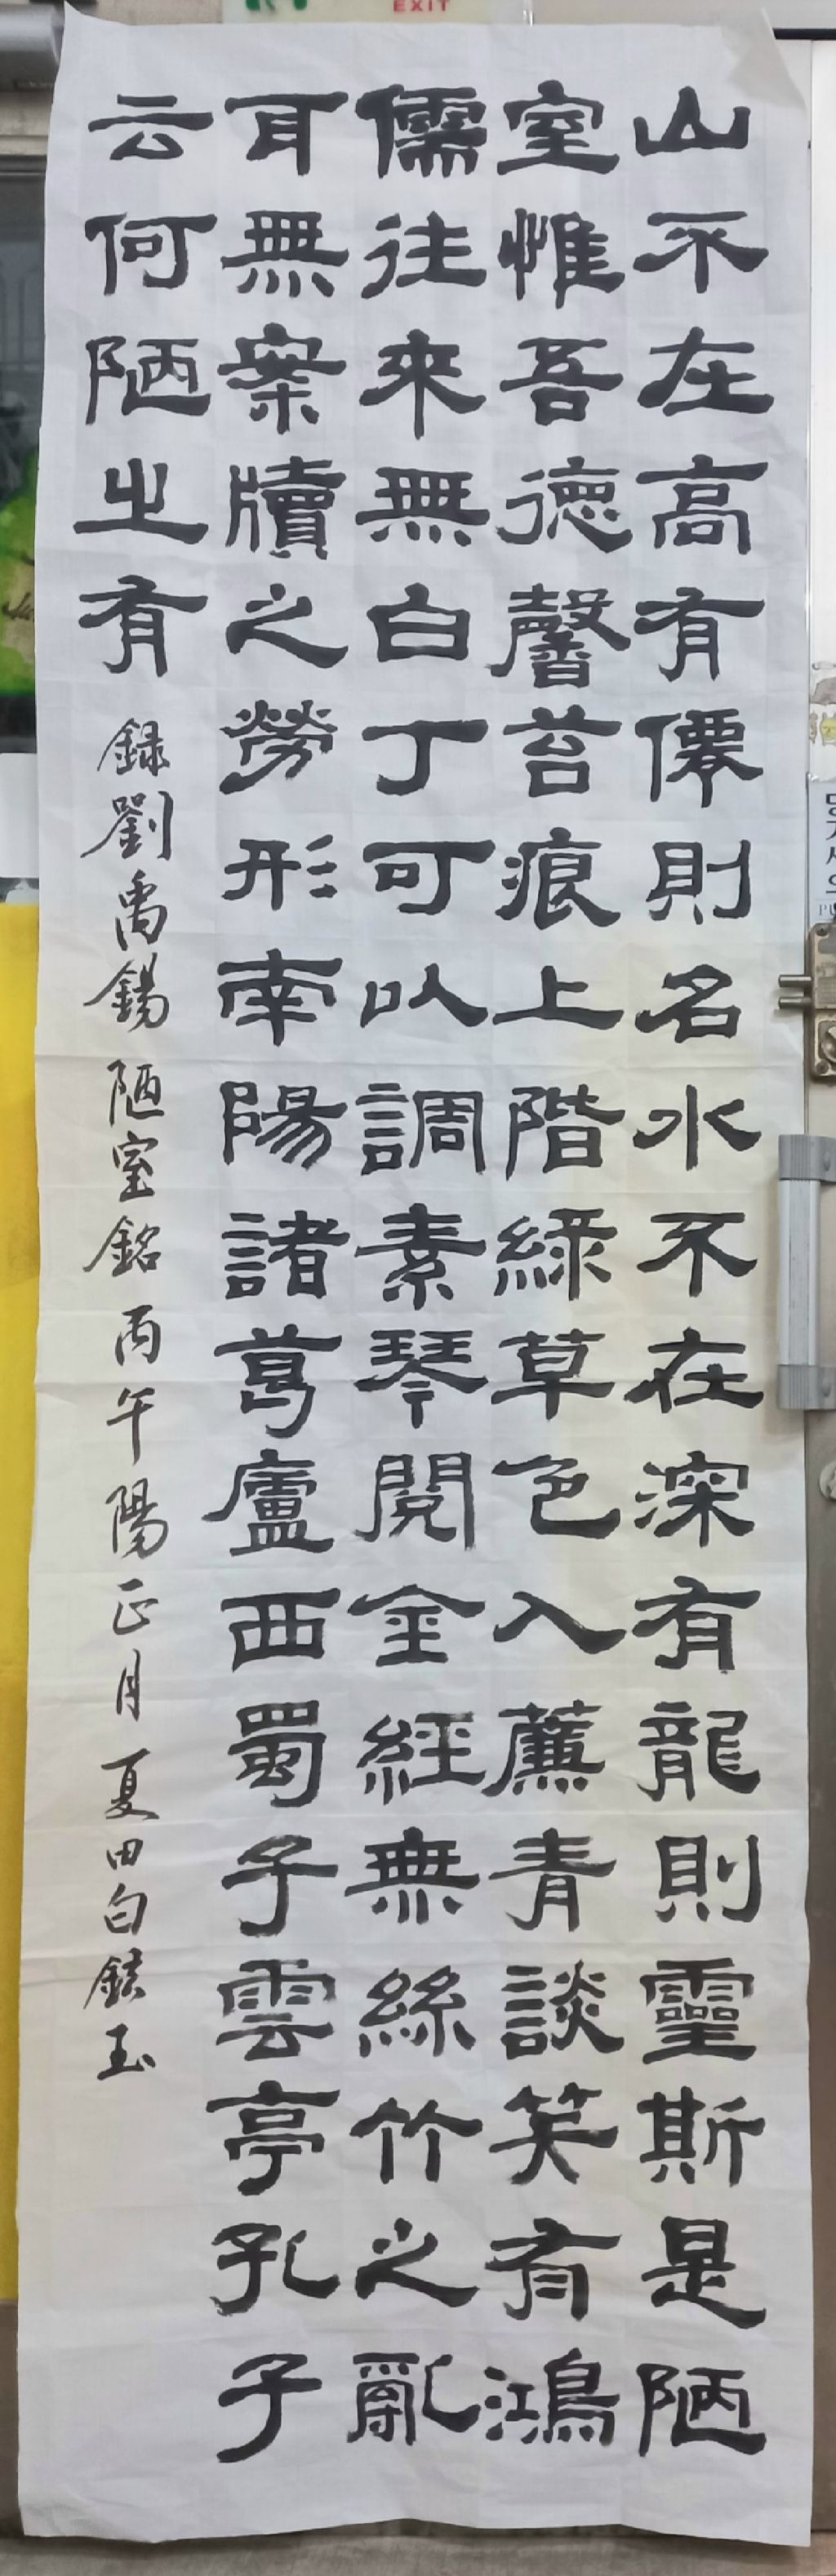 山不在高有僊則名水不在深有龍則靈斯是陋
室惟吾德馨苔痕上階綠草色入薦青談笑有鴻
儒往來無白丁可以調素琴閱金經無絲竹之亂
耳無案牘之勞形南陽諸葛廬西蜀子雲亭孔子
云何陋之有
錄劉禹錫陋室銘丙午陽正月夏田白鉉玉
EXIT